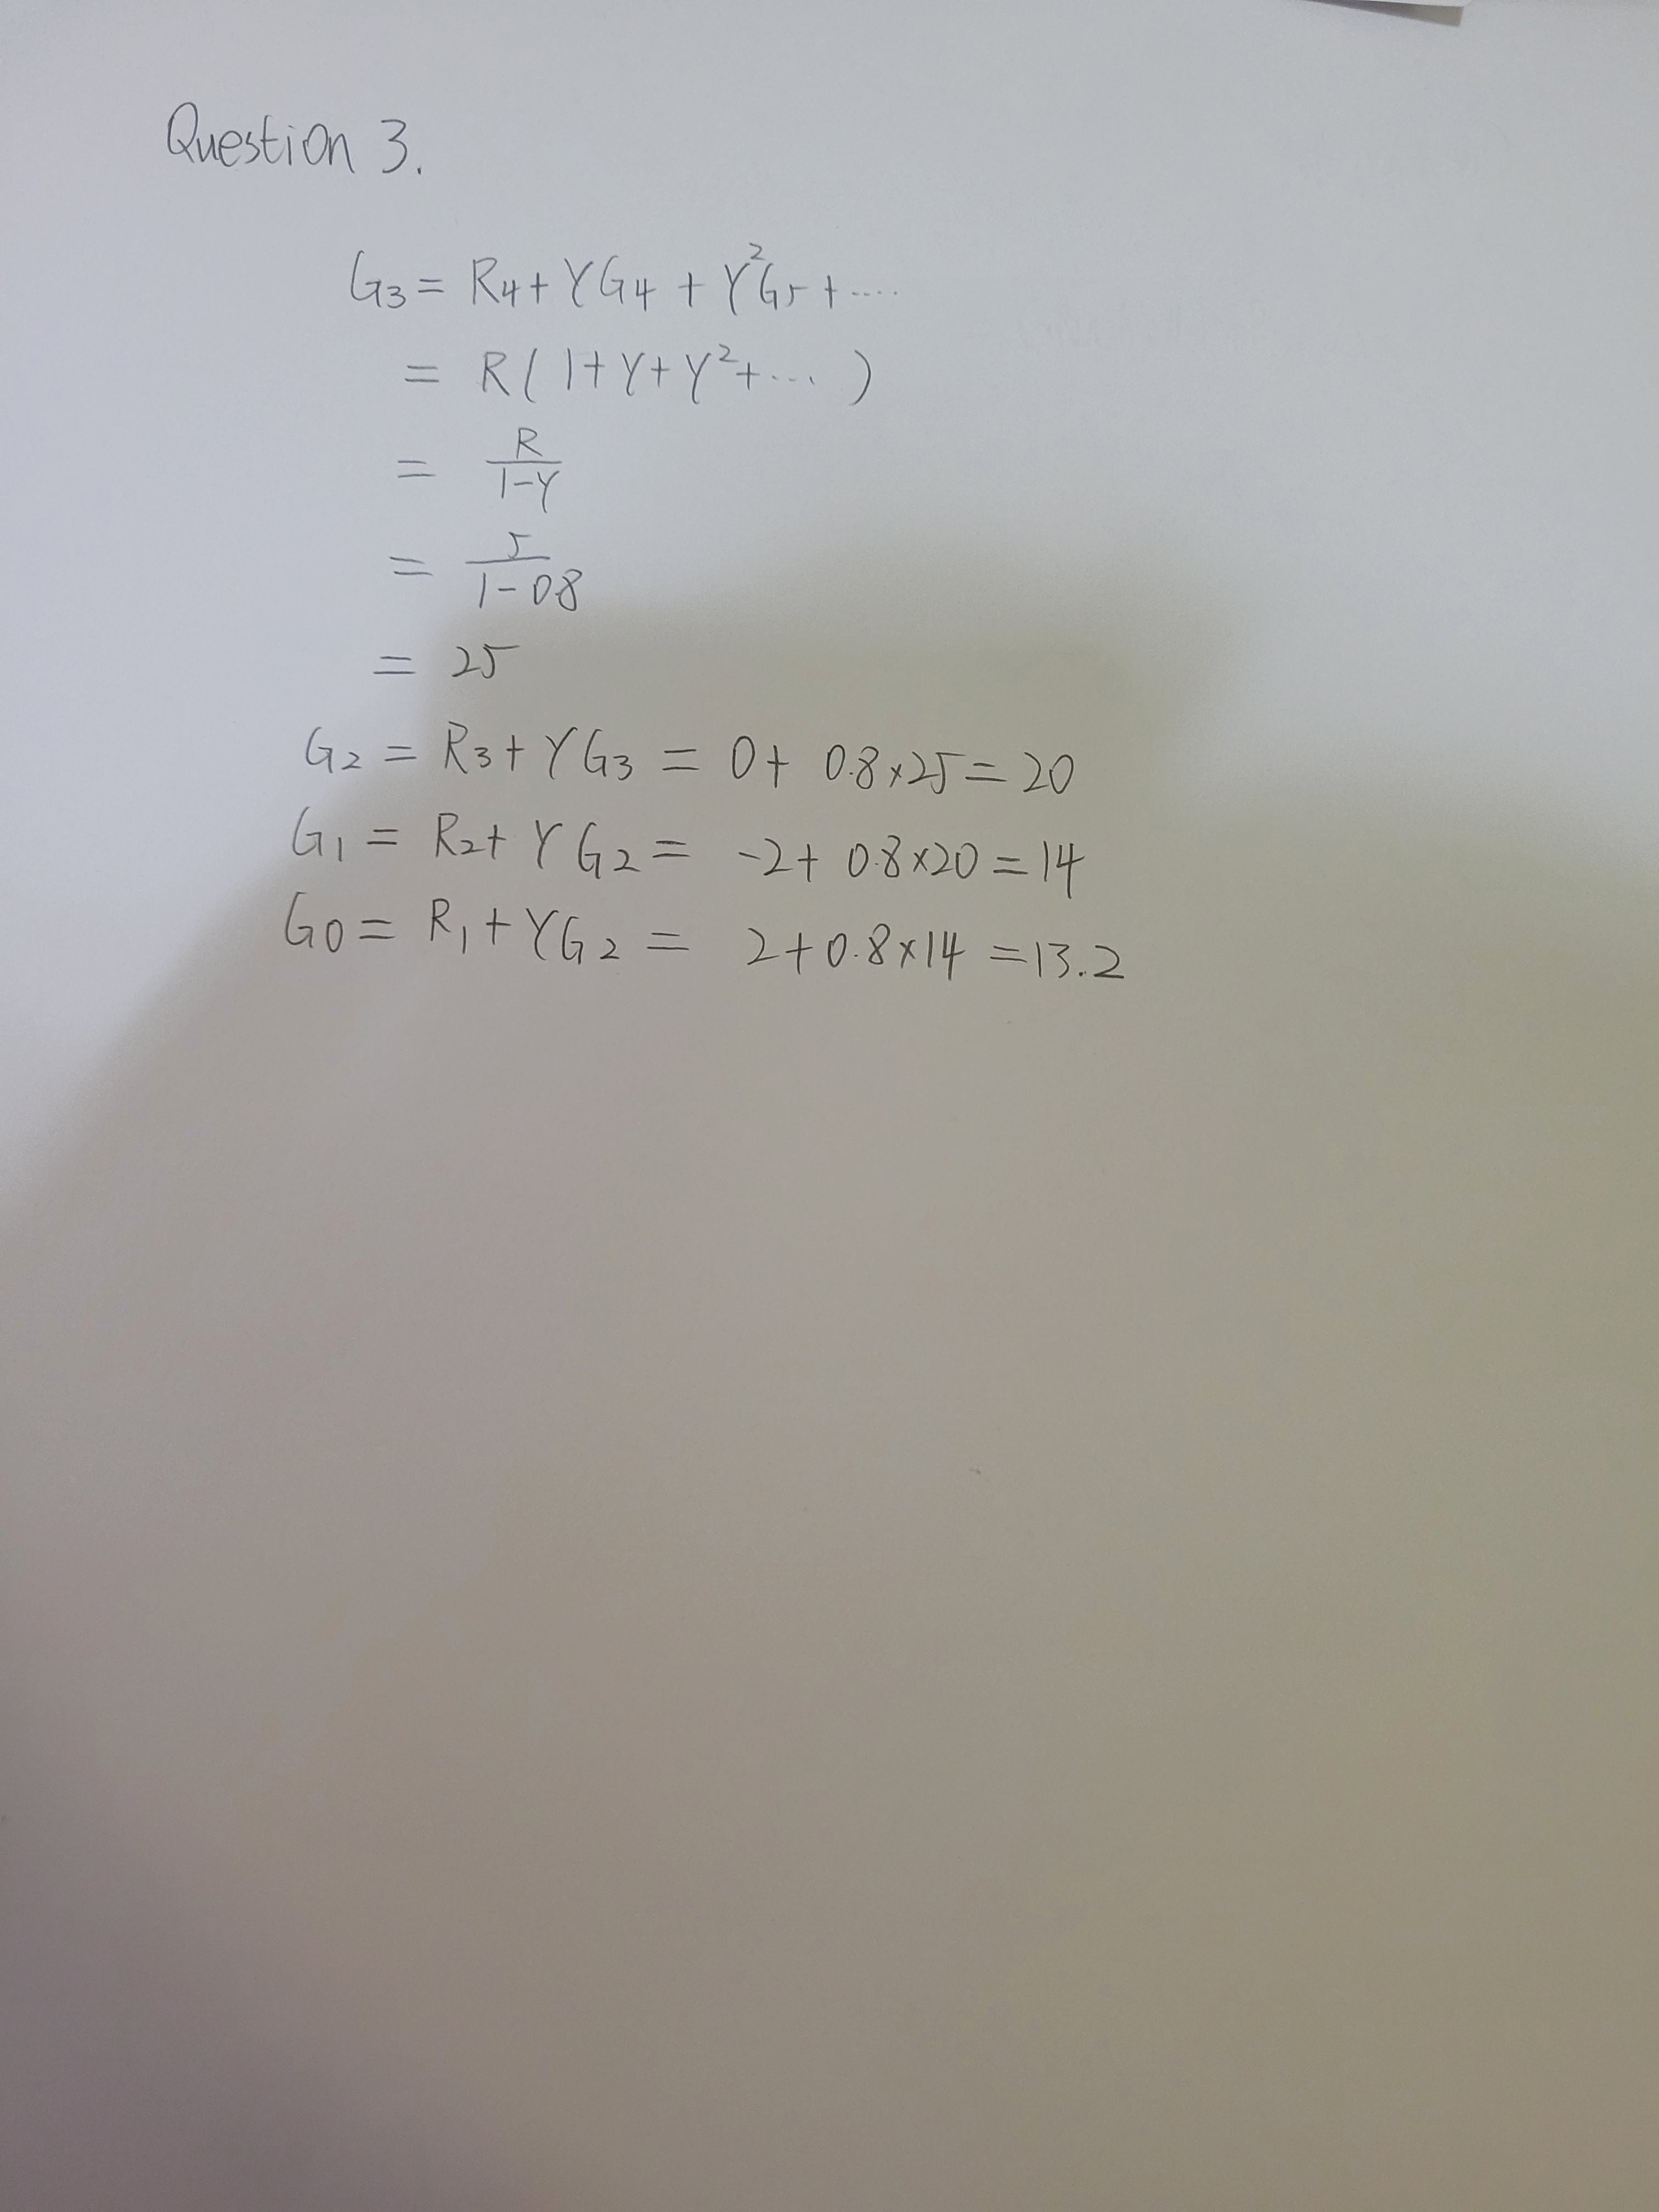 Question 3.
G3 = R4 + γG4 + γ²G5 + ....
= R(1+γ+γ²+...)
= R/(1-γ)
= 5/(1-0.8)
= 25
G2 = R3 + γG3 = 0 + 0.8×25 = 20
G1 = R2 + γG2 = -2 + 0.8×20 = 14
G0 = R1 + γG2 = 2 + 0.8×14 = 13.2